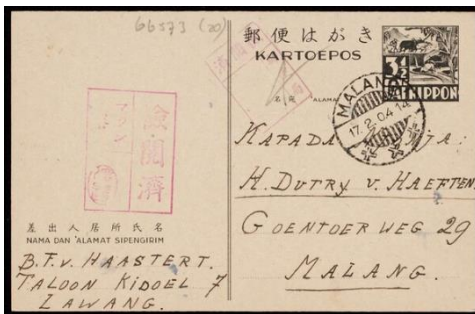 66573 (20)
郵便はがき
KARTOEPOS
3½
NIPPON
名宛 ALAMAT
MALANG
17.2.04 14
KAPADA
H. DUTRY V. HAEFTEN
GOENTOER WEG 29
MALANG.
検閲済
マラン
差出人居所氏名
NAMA DAN 'ALAMAT SIPENGIRIM
B.F.V. HAASTERT.
TALOON KIDOEL 7
LAWANG.